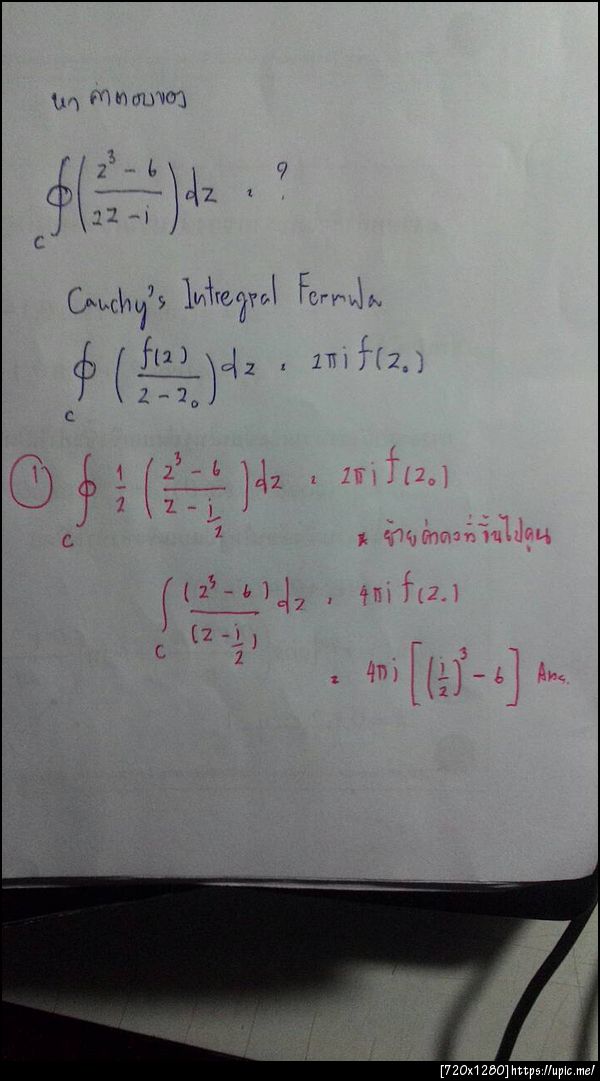 หา คำตอบของ
∮c ( (z³ - 6) / (2z - i) ) dz = ?
Cauchy's Intregral Formula
∮c ( f(z) / (z - z₀) ) dz = 2πi f(z₀)
① ∮c 1/2 ( (z³ - 6) / (z - i/2) ) dz = 2πi f(z₀)
* ย้ายค่าคงที่ขึ้นไปคูณ
∫c (z³ - 6) / (z - i/2) dz = 4πi f(z₀)
= 4πi [ (i/2)³ - 6 ] Ans.
[720x1280]https://upic.me/